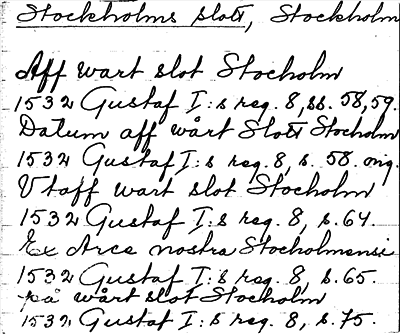 Stockholms slott, Stockholm
Aff wart slot Stocholm
1532 Gustaf I:s reg. 8, ss. 58, 59.
Datum aff wårt Slott Stocholm
1532 Gustaf I:s reg. 8, s. 58. orig.
Vtaff wart slot Stocholm
1532 Gustaf I:s reg. 8, s. 64.
Ex Arce nostra Stocholmensi
1532 Gustaf I:s reg. 8, s. 65.
på wårt slot Stocholm
1532 Gustaf I:s reg. 8, s. 75.